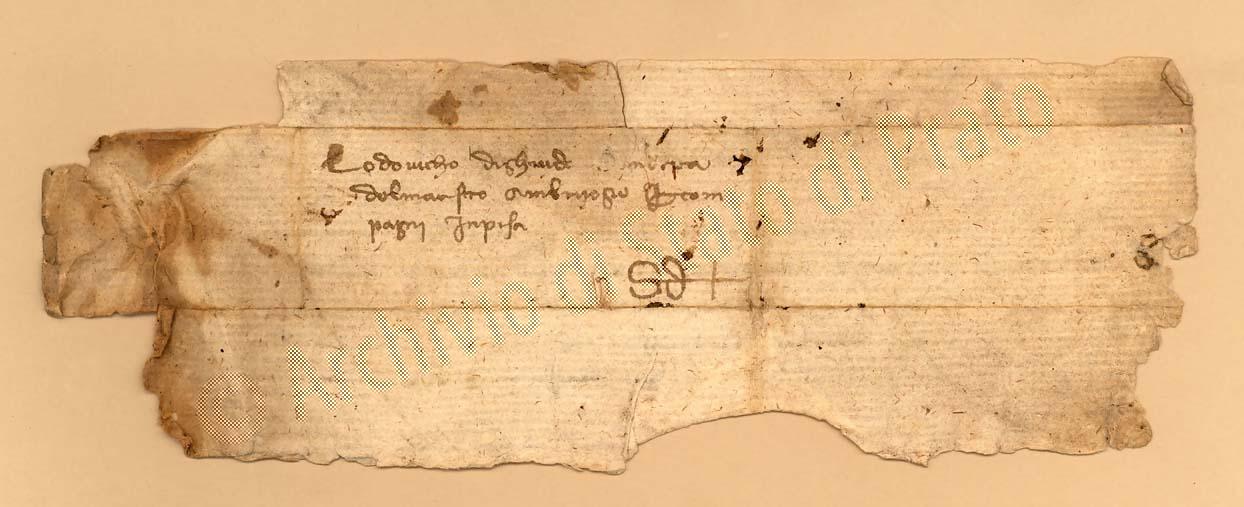 Lodovicho
delmaestro Ambruogio & com
pagni Inpisa
© Archivio di Stato di Prato